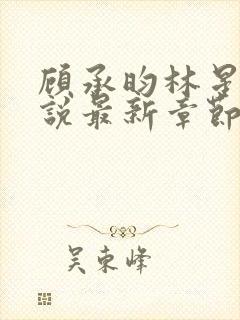 顾承昀林星
說最新章節
吴東峰